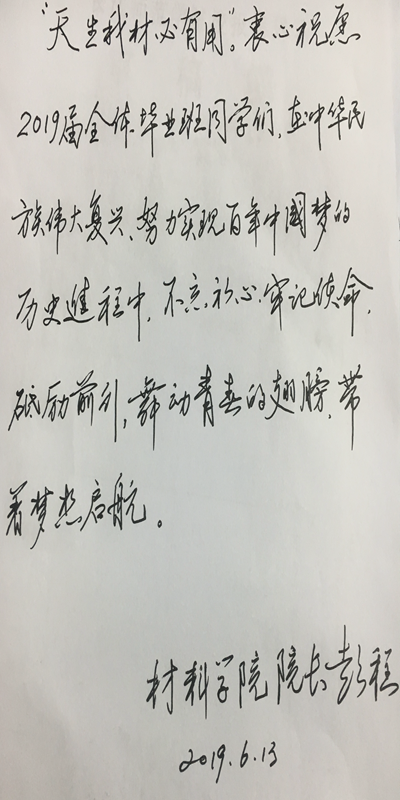 “天生我材必有用”。衷心祝愿
2019届全体毕业班同学们,在中华民
族伟大复兴、努力实现百年中国梦的
历史进程中,不忘初心,牢记使命,
砥砺前行,舞动青春的翅膀,带
着梦想启航。
材料学院院长彭程
2019.6.13